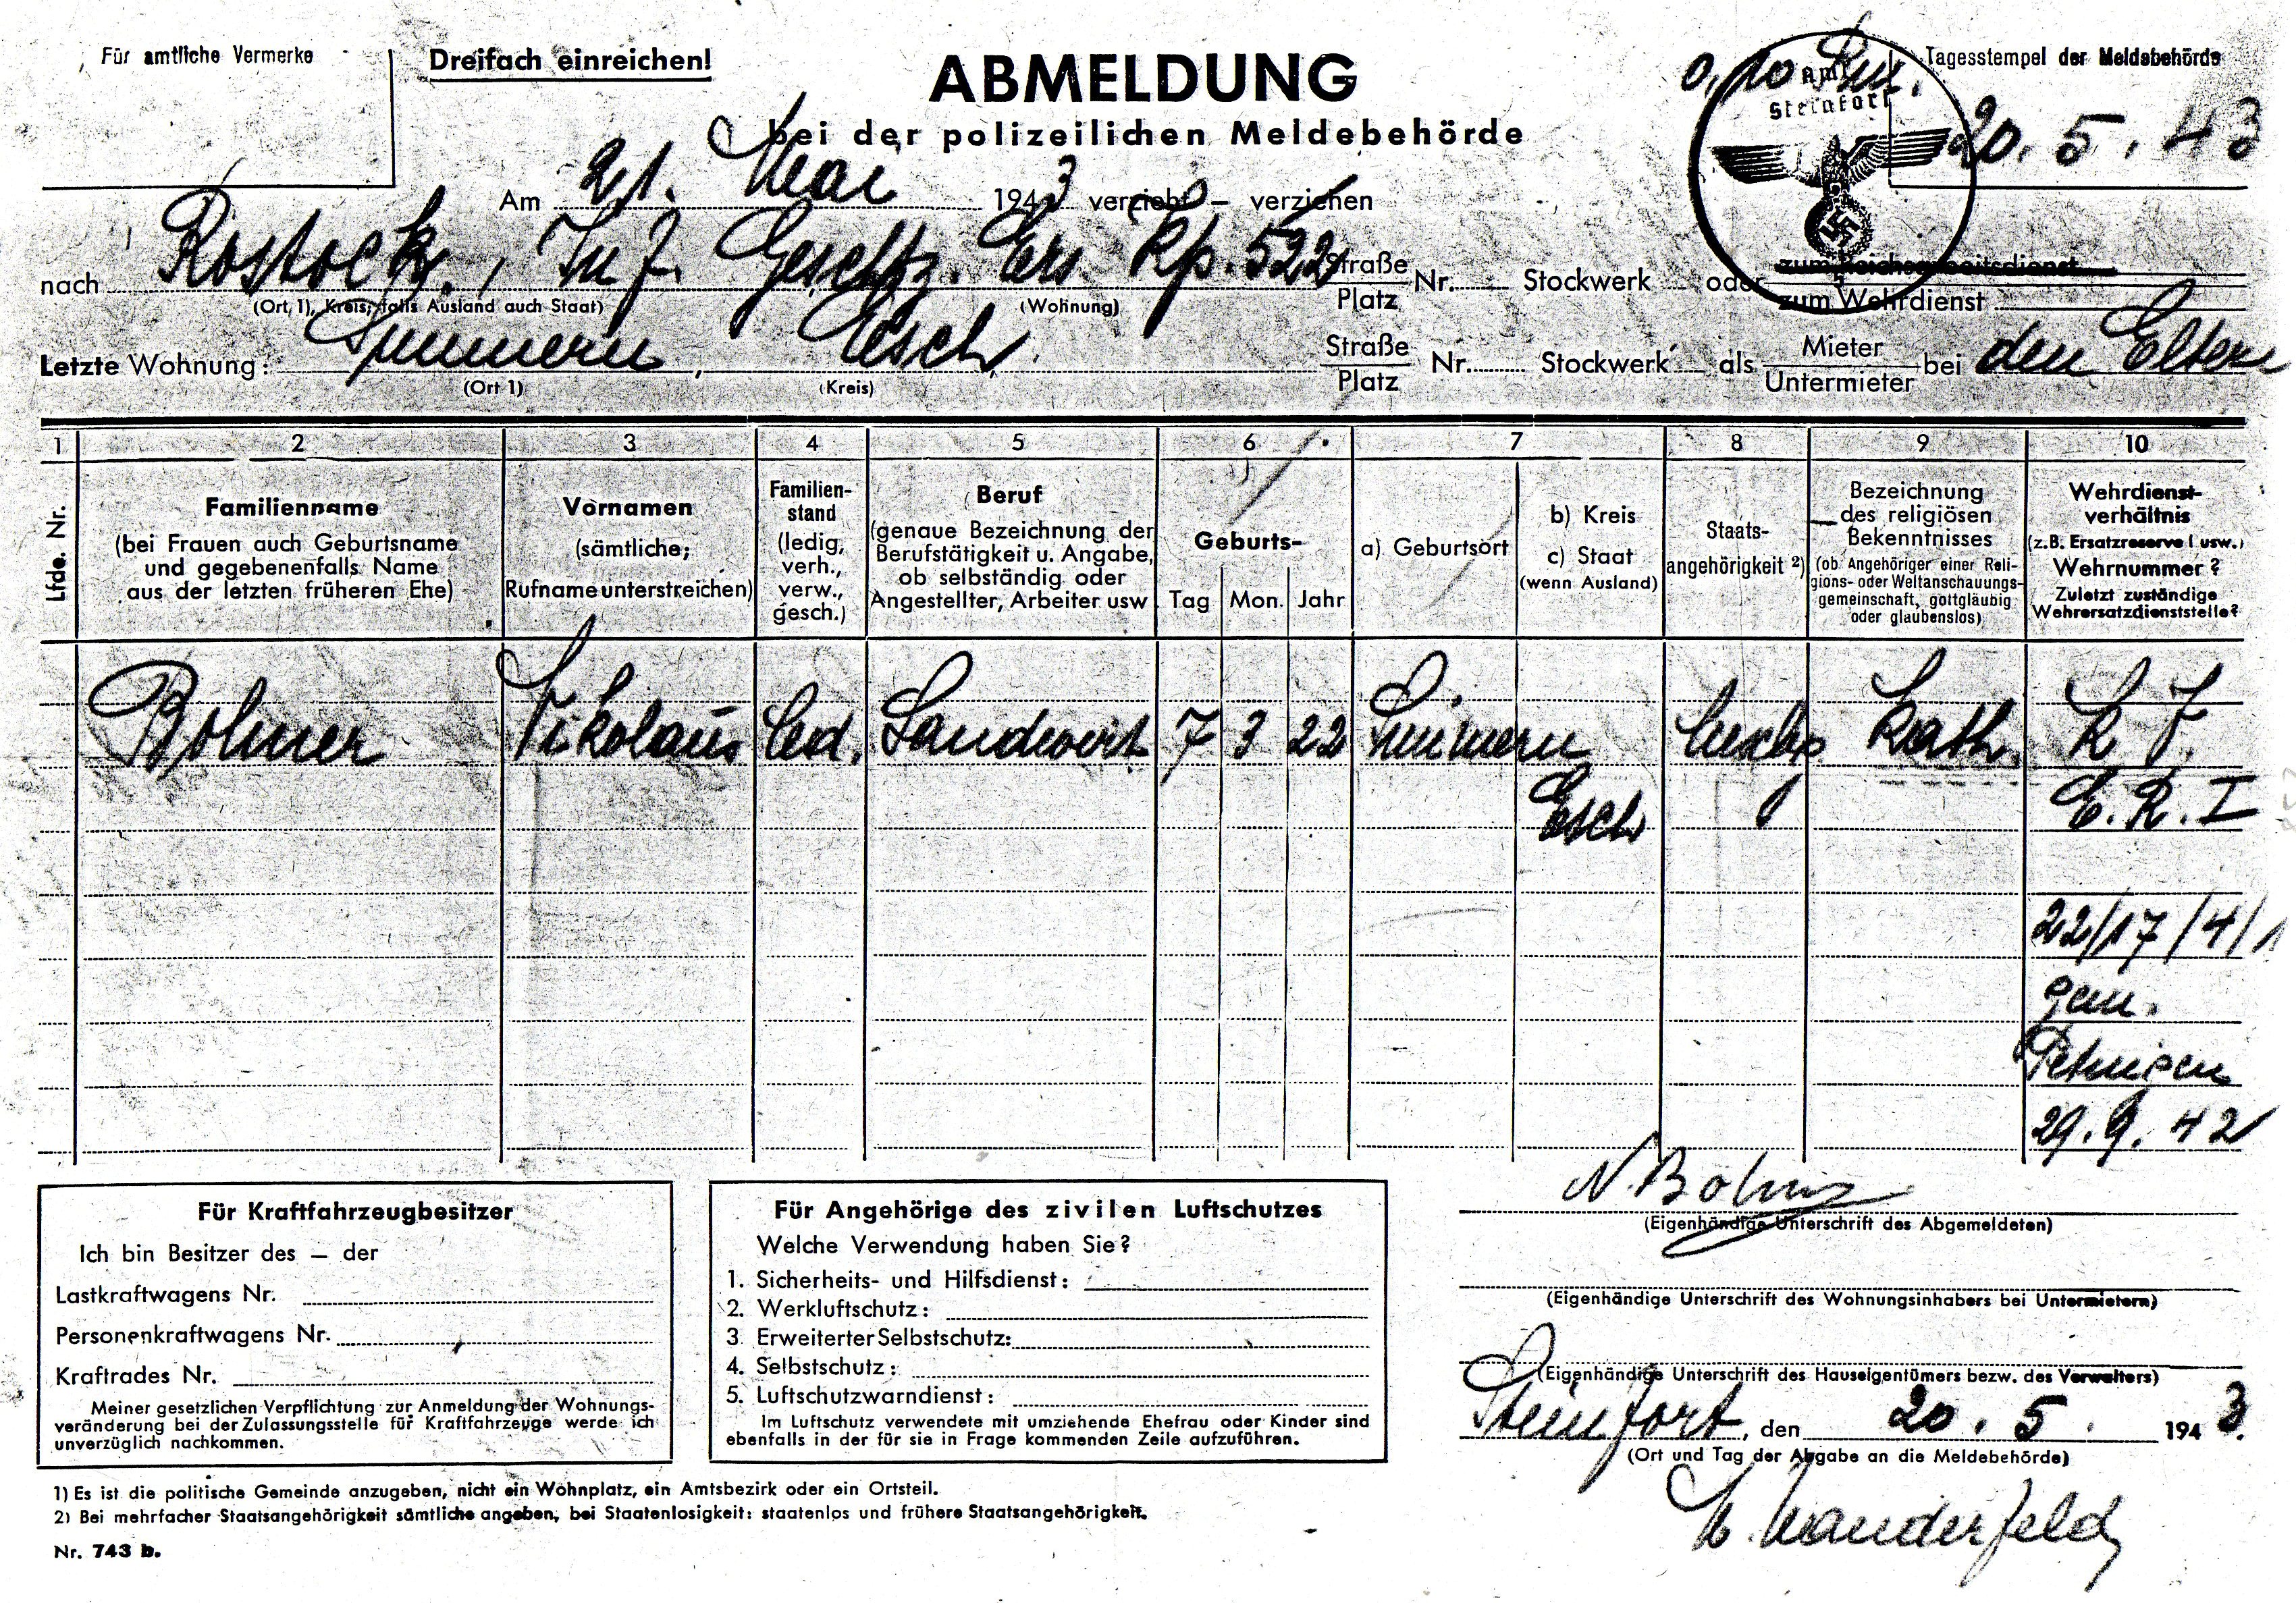 Für amtliche Vermerke
Dreifach einreichen!
ABMELDUNG
bei der polizeilichen Meldebehörde
0,10 Rm.
Amt
Steinfort
Tagesstempel der Meldebehörde
20. 5. 43
Am 21. Mai 1943 verzieht – verziehen
nach Rostock, Inf. Geschtz. Ers. Kp. 522 Straße Platz Nr. Stockwerk oder zum Reichsarbeitsdienst zum Wehrdienst
(Ort, 1), Kreis, falls Ausland auch Staat) (Wohnung)
Letzte Wohnung: Simmern, Esch, Straße Platz Nr. Stockwerk als Mieter Untermieter bei den Eltern
(Ort 1) (Kreis)
1 2 3 4 5 6 7 8 9 10
Lfde. Nr.
Familienname
(bei Frauen auch Geburtsname
und gegebenenfalls Name
aus der letzten früheren Ehe)
Vornamen
(sämtliche;
Rufname unterstreichen)
Familien-
stand
(ledig,
verh.,
verw.,
gesch.)
Beruf
(genaue Bezeichnung der
Berufstätigkeit u. Angabe,
ob selbständig oder
Angestellter, Arbeiter usw
Geburts-
Tag Mon. Jahr
a) Geburtsort
b) Kreis
c) Staat
(wenn Ausland)
Staats-
angehörigkeit 2)
Bezeichnung
des religiösen
Bekenntnisses
(ob Angehöriger einer Reli-
gions- oder Weltanschauungs-
gemeinschaft, gottgläubig
oder glaubenslos)
Wehrdienst-
verhältnis
(z.B. Ersatzreserve I usw.)
Wehrnummer?
Zuletzt zuständige
Wehrersatzdienststelle?
Bohmer Nikolaus led. Landwirt 7 3 22 Simmern Luxbg Kath.
Esch E. R. I
22/17/4/1
Petingen
29. 9. 42
Für Kraftfahrzeugbesitzer
Ich bin Besitzer des – der
Lastkraftwagens Nr.
Personenkraftwagens Nr.
Kraftrades Nr.
Meiner gesetzlichen Verpflichtung zur Anmeldung der Wohnungs-
veränderung bei der Zulassungsstelle für Kraftfahrzeuge werde ich
unverzüglich nachkommen.
Für Angehörige des zivilen Luftschutzes
Welche Verwendung haben Sie?
1. Sicherheits- und Hilfsdienst:
2. Werkluftschutz:
3. Erweiterter Selbstschutz:
4. Selbstschutz:
5. Luftschutzwarndienst:
Im Luftschutz verwendete mit umziehende Ehefrau oder Kinder sind
ebenfalls in der für sie in Frage kommenden Zeile aufzuführen.
N. Bohmer
(Eigenhändige Unterschrift des Abgemeldeten)
(Eigenhändige Unterschrift des Wohnungsinhabers bei Untermietern)
(Eigenhändige Unterschrift des Hauseigentümers bezw. des Verwalters)
Steinfort, den 20. 5. 1943.
(Ort und Tag der Abgabe an die Meldebehörde)
1) Es ist die politische Gemeinde anzugeben, nicht ein Wohnplatz, ein Amtsbezirk oder ein Ortsteil.
2) Bei mehrfacher Staatsangehörigkeit sämtliche angeben, bei Staatenlosigkeit: staatenlos und frühere Staatsangehörigkeit.
Nr. 743 b.